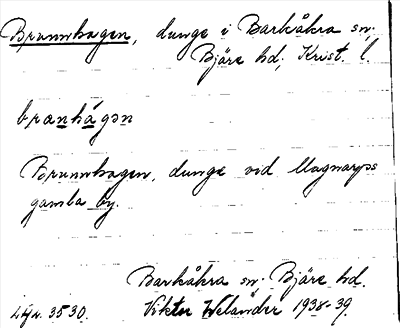 Brunnhagen, dunge i Barkåkra sn,
Bjäre hd, Krist. l.
branhágən
Brunnhagen, dunge vid Magnarps
gamla by.
Barkåkra sn. Bjäre hd.
Viktor Welander 1938-39.
3530.